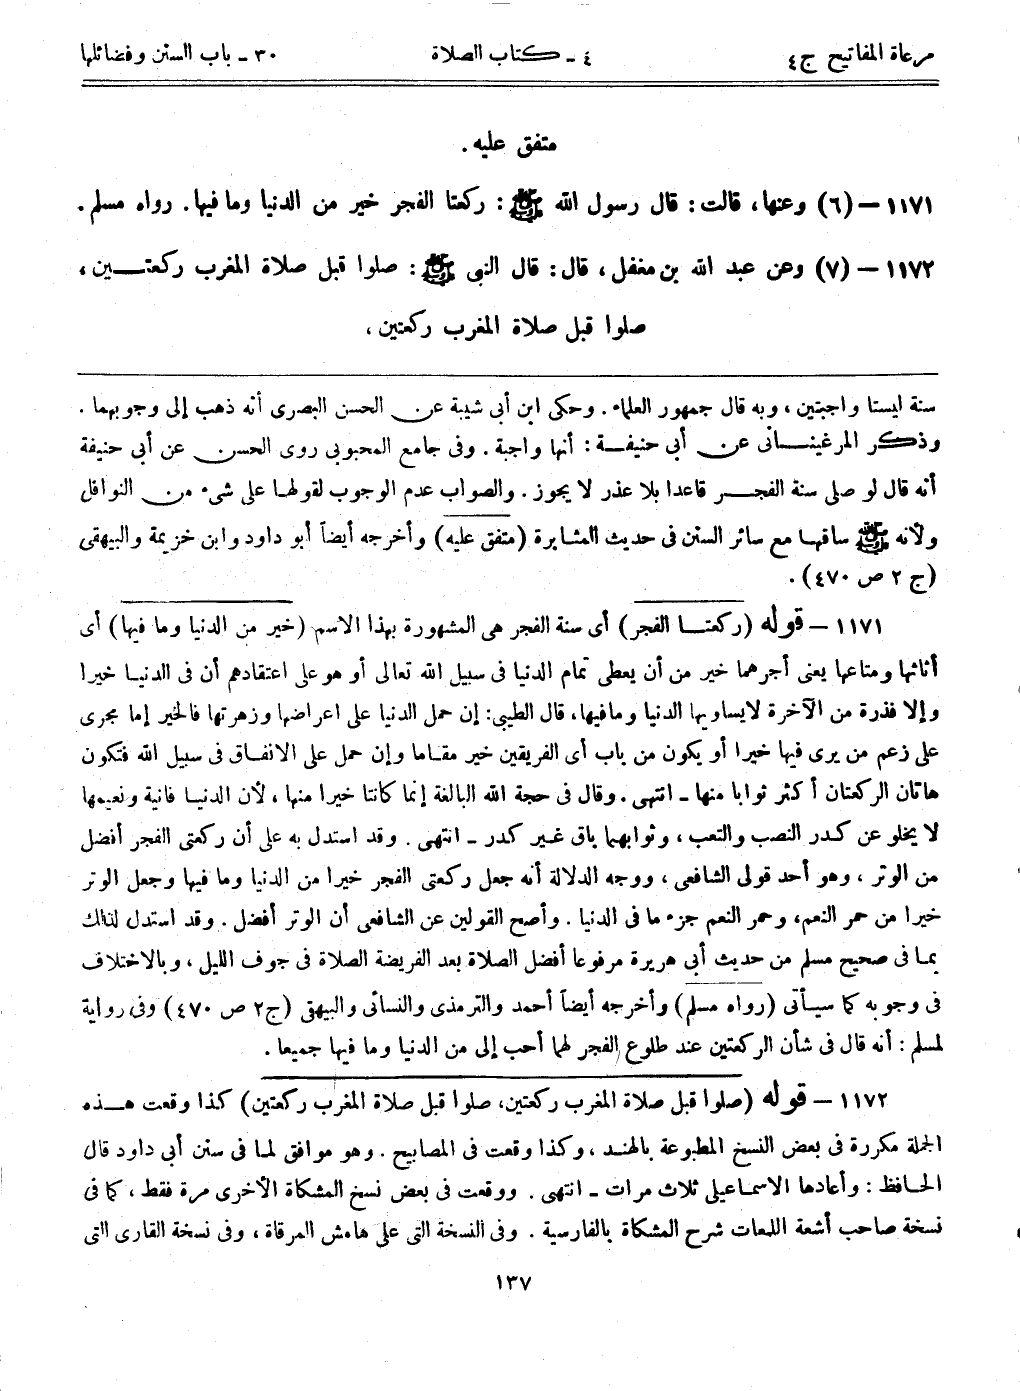 مرعاة المفاتيح ج٤ ٤ ـ كتاب الصلاة ٣٠ ـ باب السنن وفضائلها
متفق عليه .
١١٧١ – (٦) وعنها، قالت: قال رسول الله ﷺ : ركعتا الفجر خير من الدنيا وما فيها. رواه مسلم .
١١٧٢ – (٧) وعن عبد الله بن مغفل ، قال: قال النبى ﷺ : صلوا قبل صلاة المغرب ركعتـــين ،
صلوا قبل صلاة المغرب ركعتين ،
سنة ليستا واجبتين ، وبه قال جمهور العلماء . وحكى ابن أبى شيبة عن الحسن البصرى أنه ذهب إلى وجوبهما .
وذكر المرغينانى عن أبى حنيفة : أنها واجبة . وفى جامع المحبوبى روى الحسن عن أبى حنيفة
أنه قال لو صلى سنة الفجر قاعدا بلا عذر لا يجوز . والصواب عدم الوجوب لقولها على شىء من النوافل
ولأنه ﷺ ساقها مع سائر السنن فى حديث المثابرة (متفق عليه) وأخرجه أيضاً أبو داود وابن خزيمة والبيهقى
(ج ٢ ص ٤٧٠) .
١١٧١ – قوله (ركعتا الفجر) أى سنة الفجر هى المشهورة بهذا الاسم (خير من الدنيا وما فيها) أى
أثاثها ومتاعها يعنى أجرهما خير من أن يعطى تمام الدنيا فى سبيل الله تعالى أو هو على اعتقادهم أن فى الدنيا خيرا
وإلا فذرة من الآخرة لايساويها الدنيا ومافيها، قال الطيبى: إن حمل الدنيا على اعراضها وزهرتها فالخير إما مجرى
على زعم من يرى فيها خيرا أو يكون من باب أى الفريقين خير مقاما وإن حمل على الانفاق فى سبيل الله فتكون
هاتان الركعتان أكثر ثوابا منها ـ انتهى . وقال فى حجة الله البالغة إنما كانتا خيرا منها ، لأن الدنيا فانية ونعيمها
لا يخلو عن كدر النصب والتعب ، وثوابهما باق غير كدر ـ انتهى . وقد استدل به على أن ركعتى الفجر أفضل
من الوتر ، وهو أحد قولى الشافعى ، ووجه الدلالة أنه جعل ركعتى الفجر خيرا من الدنيا وما فيها وجعل الوتر
خيرا من حمر النعم، وحمر النعم جزء ما فى الدنيا . وأصح القولين عن الشافعى أن الوتر أفضل . وقد استدل لذالك
بما فى صحيح مسلم من حديث أبى هريرة مرفوعا أفضل الصلاة بعد الفريضة الصلاة فى جوف الليل ، وبالاختلاف
فى وجوبه كما سيأتى (رواه مسلم) وأخرجه أيضاً أحمد والترمذى والنسائى والبيهقى (ج٢ ص ٤٧٠) وفى رواية
لمسلم : أنه قال فى شأن الركعتين عند طلوع الفجر لهما أحب إلى من الدنيا وما فيها جميعا .
١١٧٢ – قوله (صلوا قبل صلاة المغرب ركعتين، صلوا قبل صلاة المغرب ركعتين) كذا وقعت هـذه
الجملة مكررة فى بعض النسخ المطبوعة بالهند ، وكذا وقعت فى المصابيح . وهو موافق لما فى سنن أبى داود قال
الحافظ : وأعادها الاسماعيلى ثلاث مرات ـ انتهى . ووقعت فى بعض نسخ المشكاة الأخرى مرة فقط ، كما فى
نسخة صاحب أشعة اللمعات شرح المشكاة بالفارسية . وفى النسخة التى على هامش المرقاة ، وفى نسخة القارى التى
١٣٧